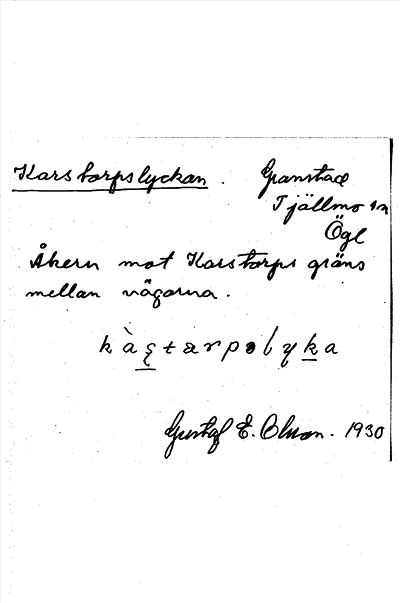 Karstorpslyckan. Granstad
Tjällmo sn
Ögl
Åkern mot Karstorps gräns
mellan vägarna.
Gustaf E. Olson. 1930